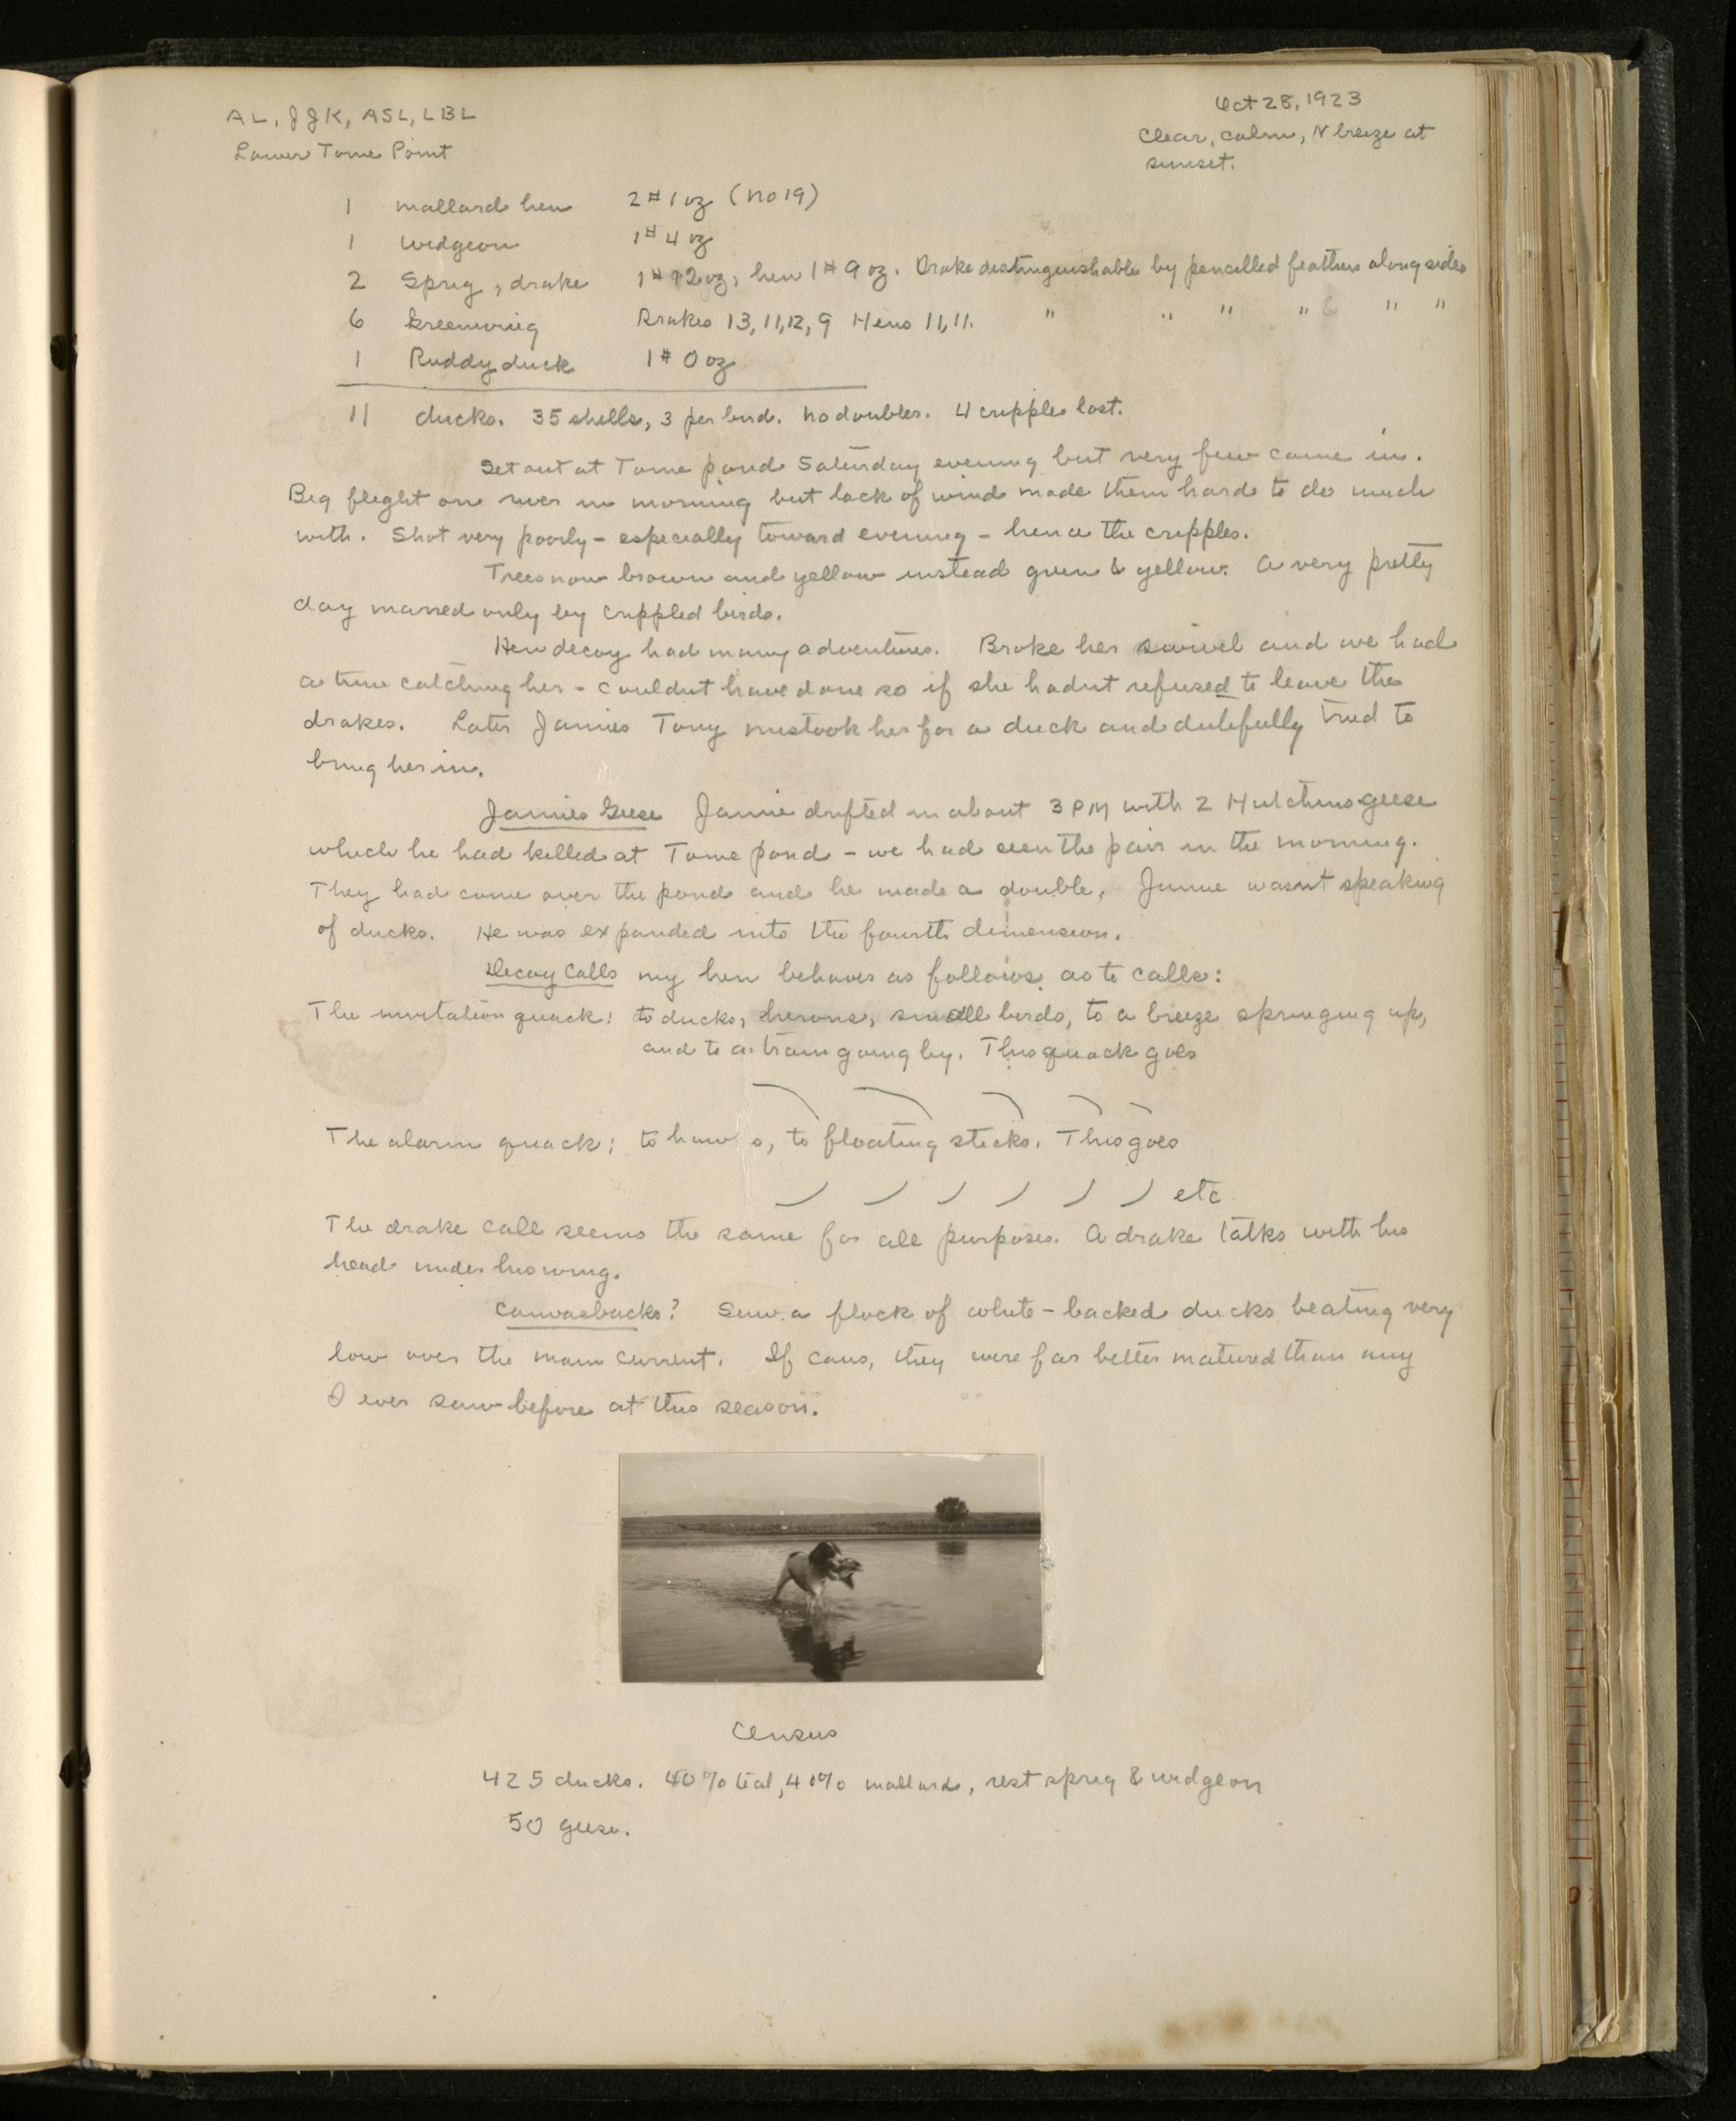 AL, JJK, ASL, LBL
Oct 28, 1923
Lower Tome Point
Clear, calm, N breeze at
sunset.
1 mallard hen 2# 1 oz (No 19)
1 widgeon 1# 4 oz
2 Sprig, drake 1# 12 oz, hen 1# 9 oz. Drake distinguishable by pencilled feathers along sides
6 Greenwing Drakes 13, 11, 12, 9 Hens 11, 11. " " " " & " "
1 Ruddy duck 1# 0 oz
11 ducks. 35 shells, 3 per bird. No doubles. 4 cripples lost.
Set out at Tome pond Saturday evening but very few came in.
Big flight on river in morning but lack of wind made them hard to do much
with. Shot very poorly - especially toward evening - hence the cripples.
Trees now brown and yellow instead green & yellow. A very pretty
day marred only by crippled birds.
Hen decoy had many adventures. Broke her swivel and we had
a time catching her - couldnt have done so if she hadnt refused to leave the
drakes. Later Jamies Tony mistook her for a duck and dutifully tried to
bring her in.
Jamies Geese Jamie drifted in about 3 PM with 2 Hutchins geese
which he had killed at Tome pond - we had seen the pair in the morning.
They had come over the pond and he made a double. Jamie wasnt speaking
of ducks. He was expanded into the fourth dimension.
Decoy Calls my hen behaves as follows as to calls:
The invitation quack: to ducks, herons, small birds, to a breeze springing up,
and to a train going by. This quack goes
The alarm quack: to hawks, to floating sticks. This goes
etc.
The drake call seems the same for all purposes. A drake talks with his
head under his wing.
Canvasbacks? Saw a flock of white-backed ducks beating very
low over the main current. If cans, they were far better matured than any
I ever saw before at this season.
Census
425 ducks. 40% teal, 40% mallards, rest sprig & widgeon
50 geese.